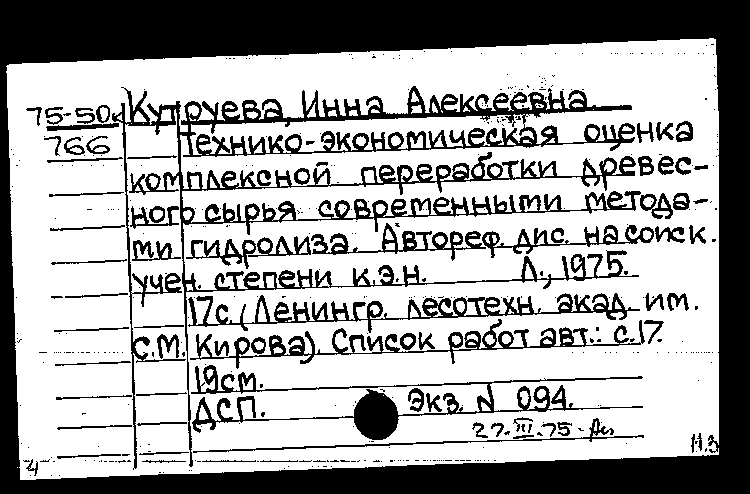 75-50к Кутруева, Инна Алексеевна.
766 Технико-экономическая оценка
комплексной переработки древес-
ного сырья современными метода-
ми гидролиза. Автореф. дис. на соиск.
учен. степени к.э.н. Л., 1975.
17с. (Ленингр. лесотехн. акад. им.
С.М. Кирова). Список работ авт.: с.17.
19см.
ДСП. Экз. N 094.
27.III.75
Н.З
4